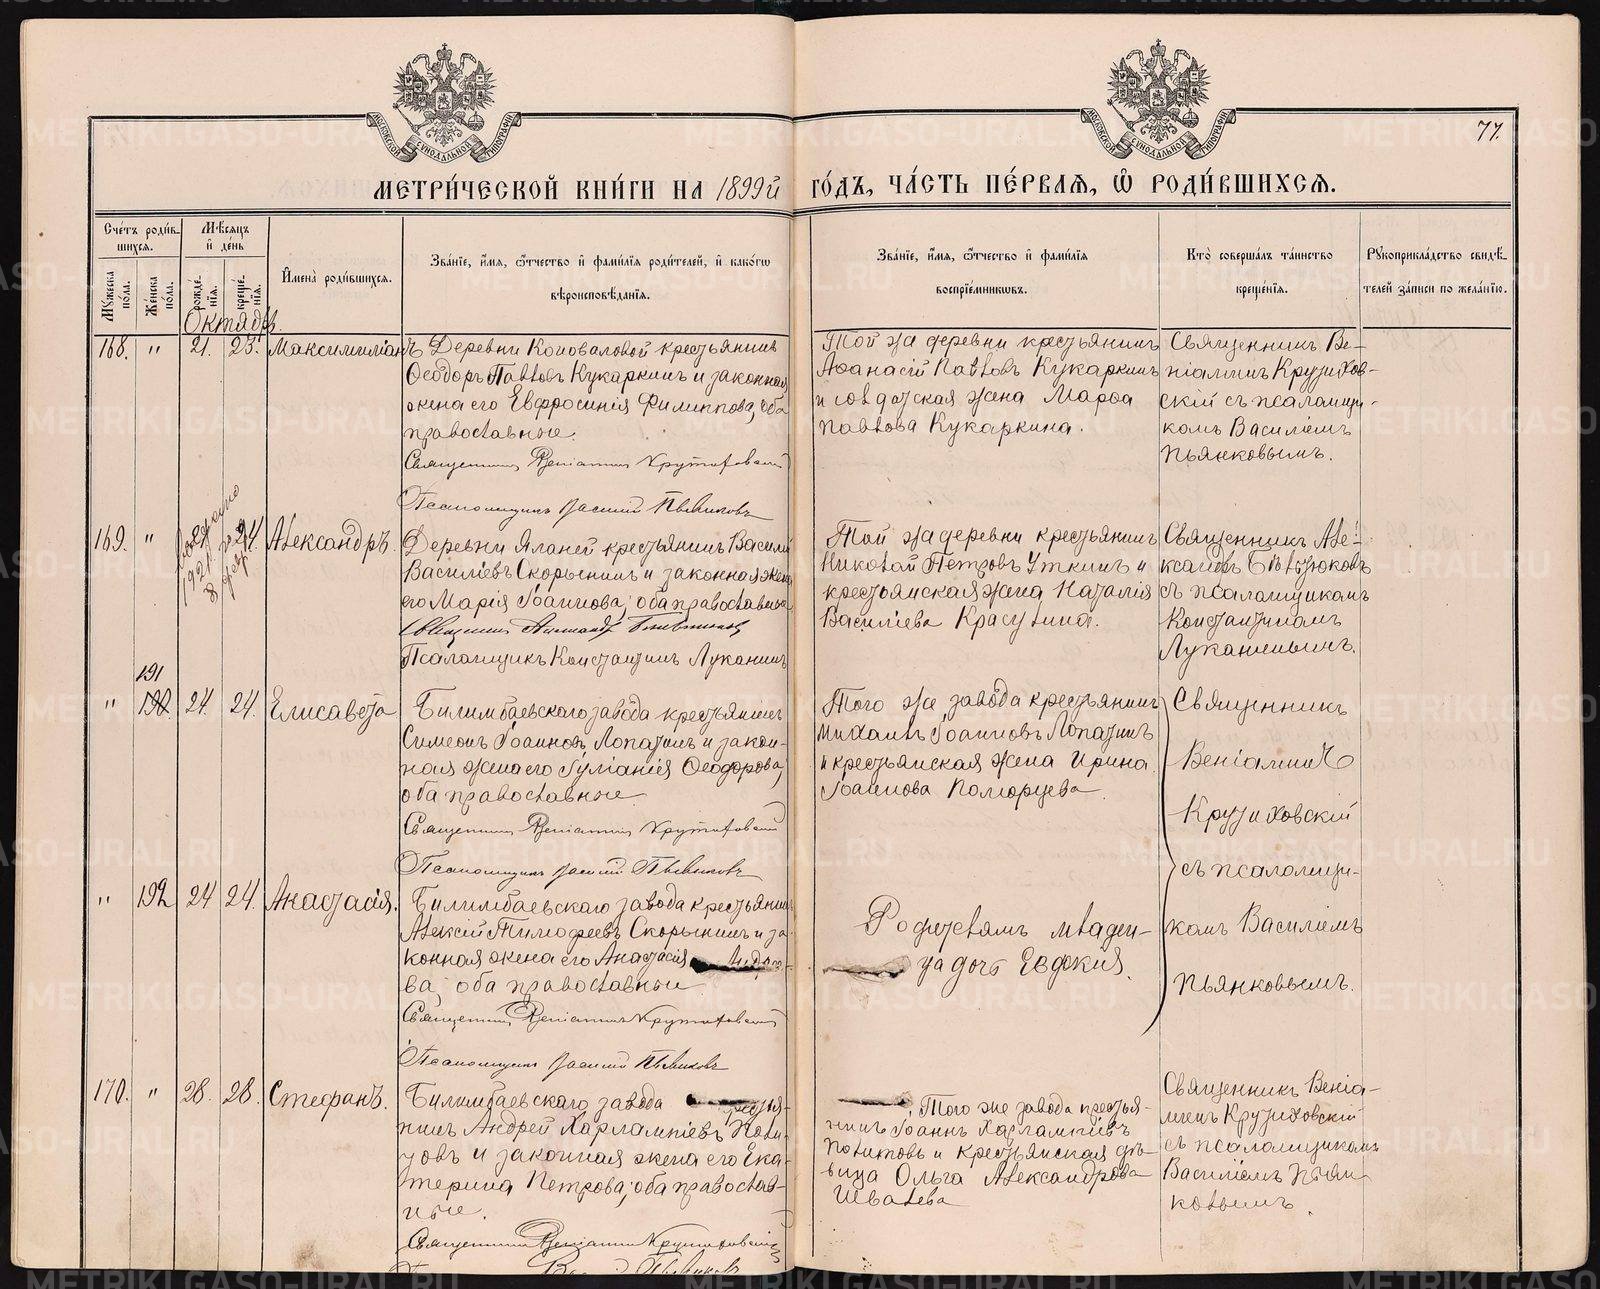 77.
МЕТРИ́ЧЕСКОЙ КНИ́ГИ НА 1899й ГО́ДЪ, ЧА́СТЬ ПЕ́РВАЯ, Ѿ РОДИ́ВШИХСЯ.
Сче́тъ роди́в-
шихся.
Мꙋжеска по́ла.
Же́нска по́ла.
Мѣ́сяцъ
и҆ де́нь
рожде́-
нїя.
креще́-
нїя.
И҆мена̀ роди́вшихся.
Зва́нїе, и҆́мя, ѻ҆́тчество и҆ фами́лїя роди́телей, и҆ како́гѡ
вѣроисповѣ́данїя.
Зва́нїе, и҆́мя, ѻ҆́тчество и҆ фами́лїя
воспрїе́мникѡвъ.
Кто̀ соверша́лъ та́инство
креще́нїя.
Рꙋкоприкла́дство свидѣ́-
телей за́писи по жела́нїю.
Октябрь.
168. " 21. 23. Максимиліанъ
Деревни Коноваловой крестьянинъ
Ѳеодоръ Павловъ Кукаркинъ и законная
жена его Евфросинія Филиппова, оба
православные.
Священникъ Веніаминъ Крутиховскій
Псаломщикъ Василій Пьянковъ
Той же деревни крестьянинъ
Аѳанасій Павловъ Кукаркинъ
и солдатская жена Марѳа
Павлова Кукаркина.
Священникъ Ве-
ніаминъ Крутихов-
скій съ псаломщи-
комъ Василіемъ
Пьянковымъ.
169. " 24. Александръ.
1921
8
Деревни Яланей крестьянинъ Василій
Василіевъ Скорынинъ и законная жена
его Марія Іоаннова, оба православные
Псаломщикъ Константинъ Луканинъ
Той же деревни крестьянинъ
Николай Петровъ Уткинъ и
крестьянская жена Наталія
Василіева Красулина.
Священникъ Але-
ксандръ
съ псаломщикомъ
Константиномъ
Луканинымъ.
191
" 190. 24. 24. Елисавета
Билимбаевскаго завода крестьянинъ
Симеонъ Іоанновъ Лопатинъ и закон-
ная жена его Іуліанія Ѳеодорова,
оба православные
Священникъ Веніаминъ Крутиховскій
Псаломщикъ Василій Пьянковъ
Того же завода крестьянинъ
Михаилъ Іоанновъ Лопатинъ
и крестьянская жена Ирина
Іоаннова Поморцева.
Священникъ
Веніаминъ
Крутиховскій
съ псаломщи-
комъ Василіемъ
Пьянковымъ.
" 192 24 24. Анастасія.
Билимбаевскаго завода крестьянинъ
Алексій Тимофеевъ Скорынинъ и за-
конная жена его Анастасія
ва, оба православные
Священникъ Веніаминъ Крутиховскій
Псаломщикъ Василій Пьянковъ
Родителямъ младен-
ца дочь Евдокія.
170. " 28. 28. Стефанъ.
Билимбаевскаго завода крестья-
нинъ Андрей Харлампіевъ Поли-
товъ и законная жена его Ека-
терина Петрова, оба православ-
ные.
Священникъ Веніаминъ Крутиховскій
Псаломщикъ Василій Пьянковъ
Того же завода крестья-
нинъ Іоаннъ Харлампіевъ
Политовъ и крестьянская дѣ-
вица Ольга Александрова
Швалева
Священникъ Веніа-
минъ Крутиховскій
съ псаломщикомъ
Василіемъ Пьян-
ковымъ.